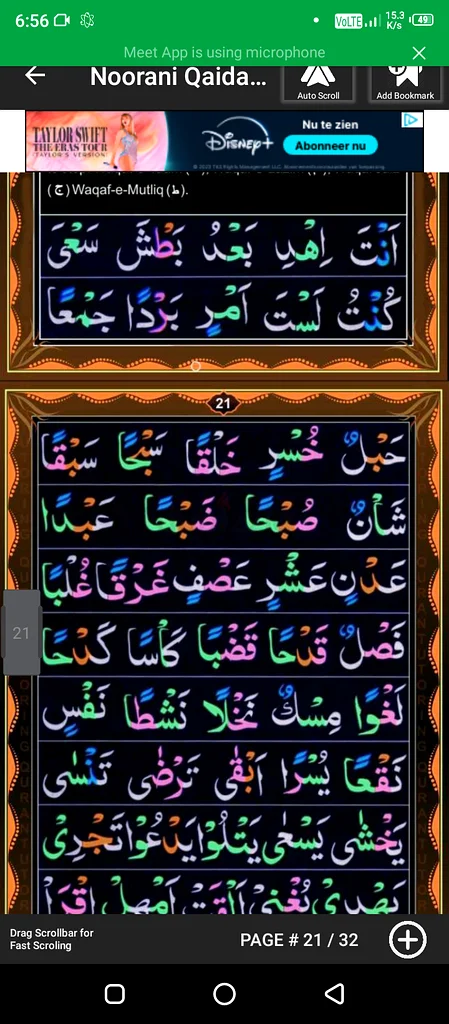 6:56 VoLTE 15.3 K/s 49
Meet App is using microphone
Noorani Qaida...
Auto Scroll
Add Bookmark
TAYLOR SWIFT
THE ERAS TOUR
(TAYLOR'S VERSION)
Disney+
Nu te zien
Abonneer nu
(ج) Waqaf-e-Mutliq (ط).
اَنْتَ اِهْدِ بَعْدُ بَطْشَ سَعْىَ
كُنْتُ لَسْتَ اَمْرٍ بَرْدًا جَمْعًا
21
حَبْلٌ خُسْرٍ خَلْقًا سَبْحًا سَبْقًا
شَأْنٌ صُبْحًا ضَبْحًا عَبْدًا
عَدْنٍ عَشْرٍ عَصْفٍ غَرْقًا غُلْبًا
فَصْلٌ قَدْحًا قَضْبًا كَأْسًا كَدْحًا
لَغْوًا مِسْكٌ نَخْلًا نَشْطًا نَفْسٍ
نَقْعًا يُسْرًا اَبْقٰى تَرْضٰى تَنْسٰى
يَخْشٰى يَسْعٰى يَتْلُوْا يَدْعُوْا تَجْرِىْ
يَهْدِىْ يُغْنِىْ اَلْقَتْ اَمْهِلْ اِقْرَاْ
21
Drag Scrollbar for
Fast Scroling
PAGE # 21 / 32